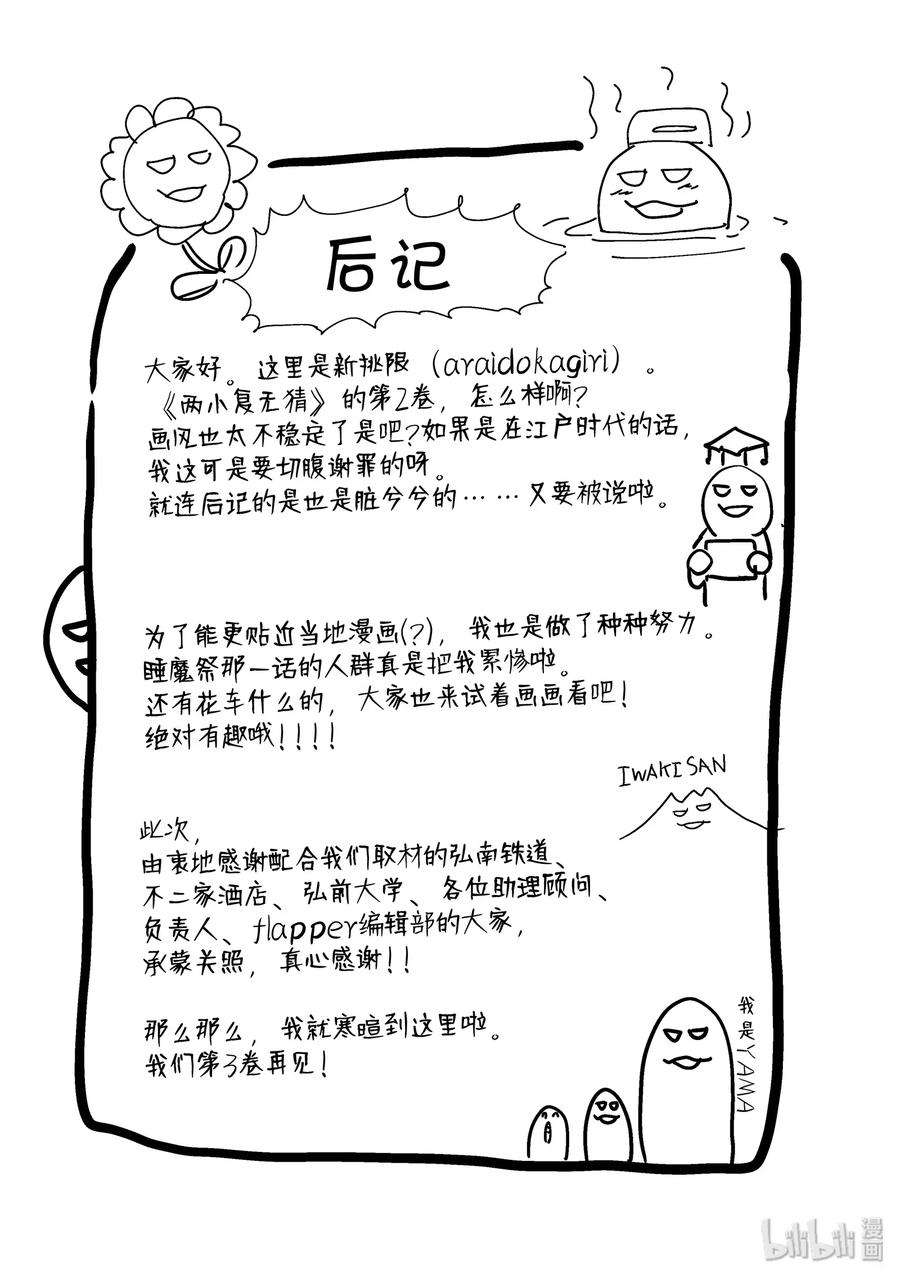 后记
大家好。这里是新挑限（araidokagiri）。
《两小复无猜》的第2卷，怎么样啊?
画风也太不稳定了是吧?如果是在江户时代的话，
我这可是要切腹谢罪的呀。
就连后记的是也是脏兮兮的……又要被说啦。
为了能更贴近当地漫画(?)，我也是做了种种努力。
睡魔祭那一话的人群真是把我累惨啦。
还有花车什么的，大家也来试着画画看吧!
绝对有趣哦!!!!
IWAKISAN
此次，
由衷地感谢配合我们取材的弘南铁道、
不二家酒店、弘前大学、各位助理顾问、
负责人、flapper编辑部的大家，
承蒙关照，真心感谢!!
那么那么，我就寒暄到这里啦。
我们第3卷再见!
我是YAMA
bilibili漫画